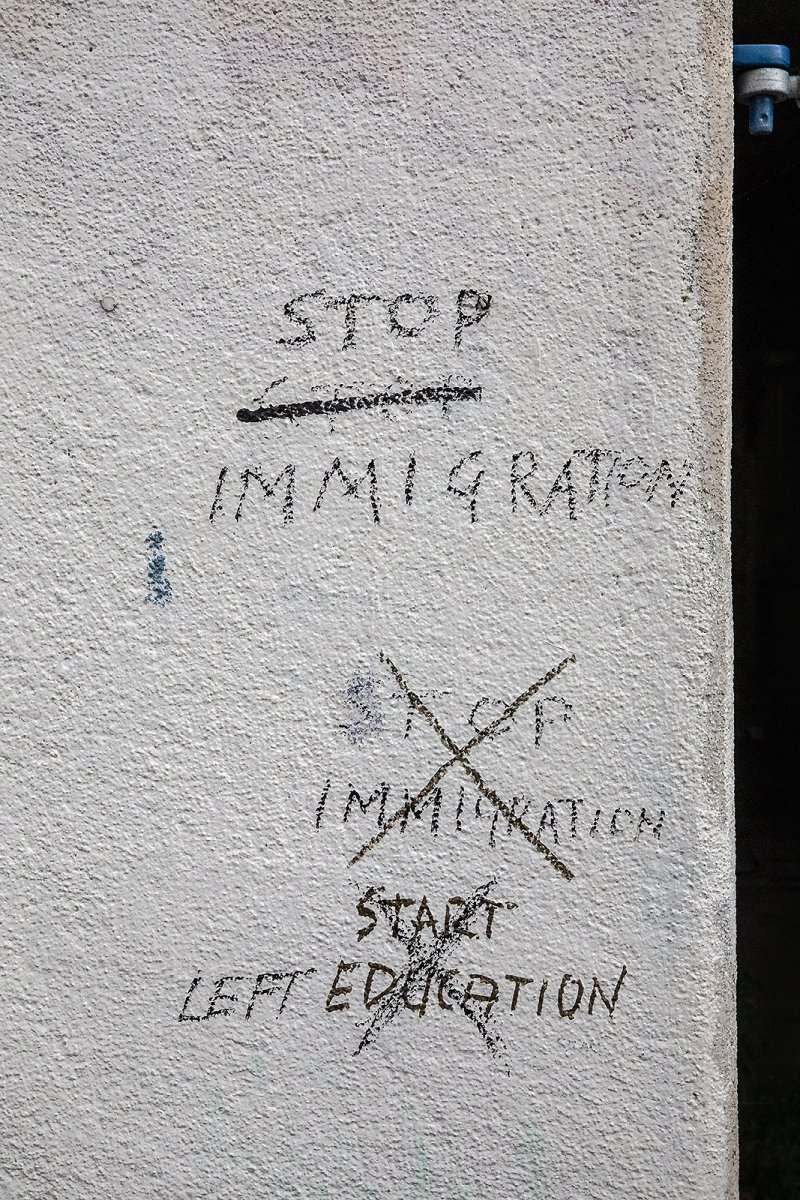 STOP
STOP
IMMIGRATION
STOP
IMMIGRATION
START
LEFT EDUCATION